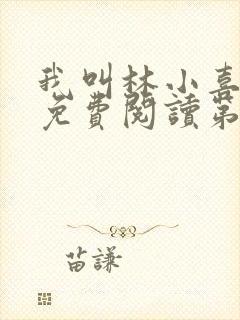 我叫林小喜
免費閱讀第
苗謙